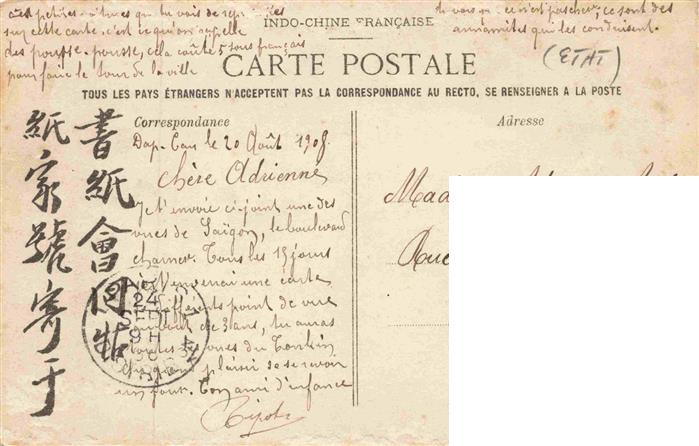 ces petites voitures que tu vois de
sur cette carte, c'est ce qu'on appelle
des pousse-pousse, cela coûte 5 sous français
pour faire le tour de la ville
tu vois que ce n'est pas cher, ce sont des
annamites qui les conduisent.
INDO-CHINE FRANÇAISE
CARTE POSTALE
(ETAT)
TOUS LES PAYS ÉTRANGERS N'ACCEPTENT PAS LA CORRESPONDANCE AU RECTO, SE RENSEIGNER A LA POSTE
Correspondance
Dap-Cau le 20 Août 1908
Chère Adrienne
Je t'envoie ci-joint une des
vues de Saïgon, le boulevard
charner. Tous les 15 jours
je t'enverrai une carte
différents point de vue
bout de 3 ans, tu auras
toutes les vues du Tonkin
plaisir de se revoir
un jour. Ton ami d'enfance
書紙會同
紙家號寄于
24
SEPT
9 H
Adresse
Mad
Rue